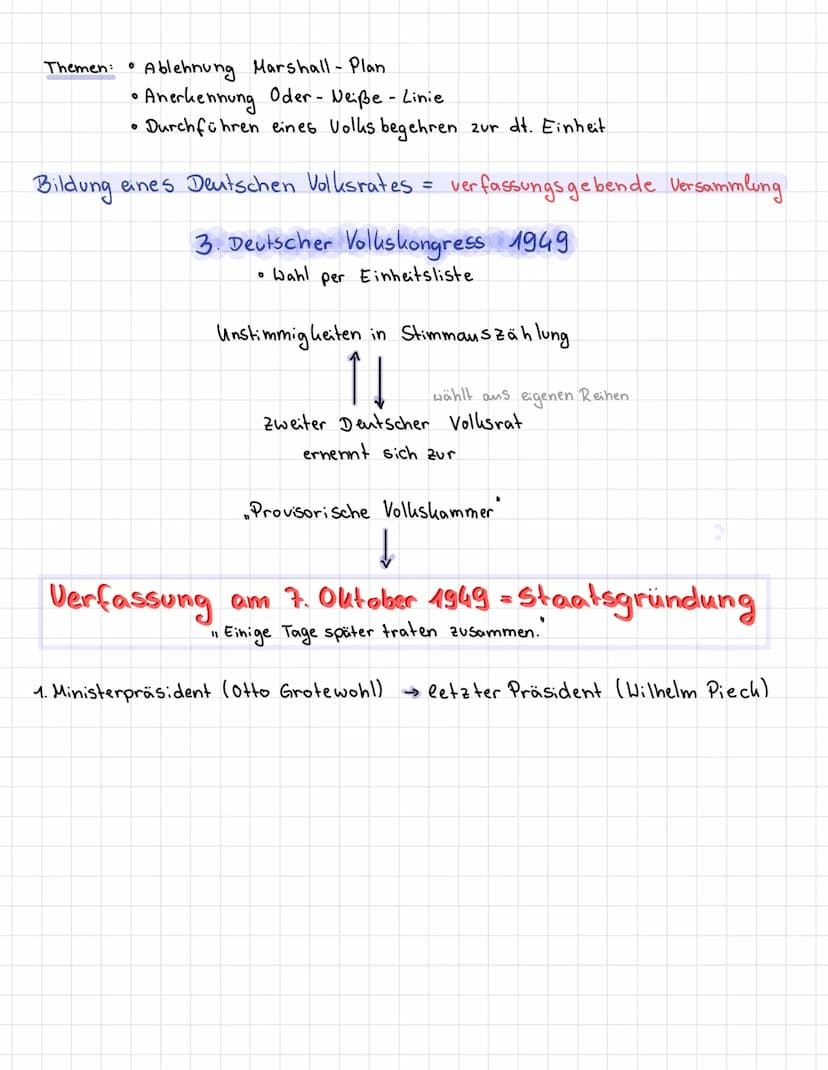 Themen: • Ablehnung Marshall-Plan
• Anerkennung Oder-Neiße-Linie
• Durchführen eines Volksbegehren zur dt. Einheit
Bildung eines Deutschen Volksrates = verfassungsgebende Versammlung
3. Deutscher Volkskongress 1949
• Wahl per Einheitsliste
Unstimmigkeiten in Stimmauszählung
↑↓
wählt aus eigenen Reihen
zweiter Deutscher Volksrat
ernennt sich zur
„Provisorische Volkskammer"
↓
Verfassung am 7. Oktober 1949 = Staatsgründung
"Einige Tage später traten zusammen."
1. Ministerpräsident (Otto Grotewohl) → letzter Präsident (Wilhelm Pieck)